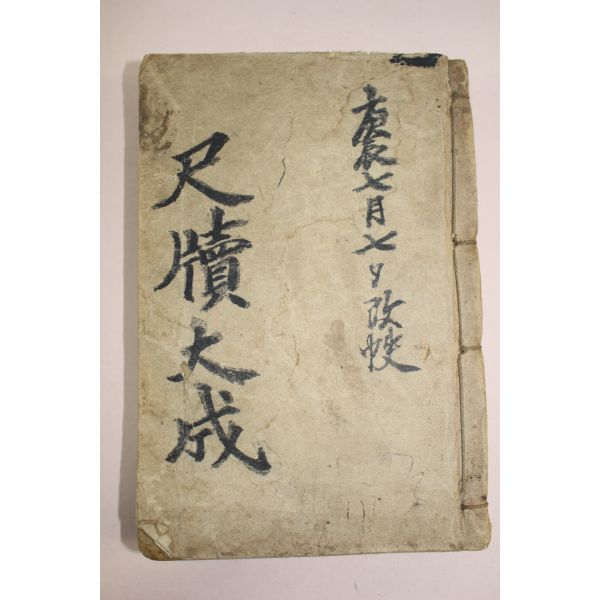 庚辰七月七日改
尺牘大成